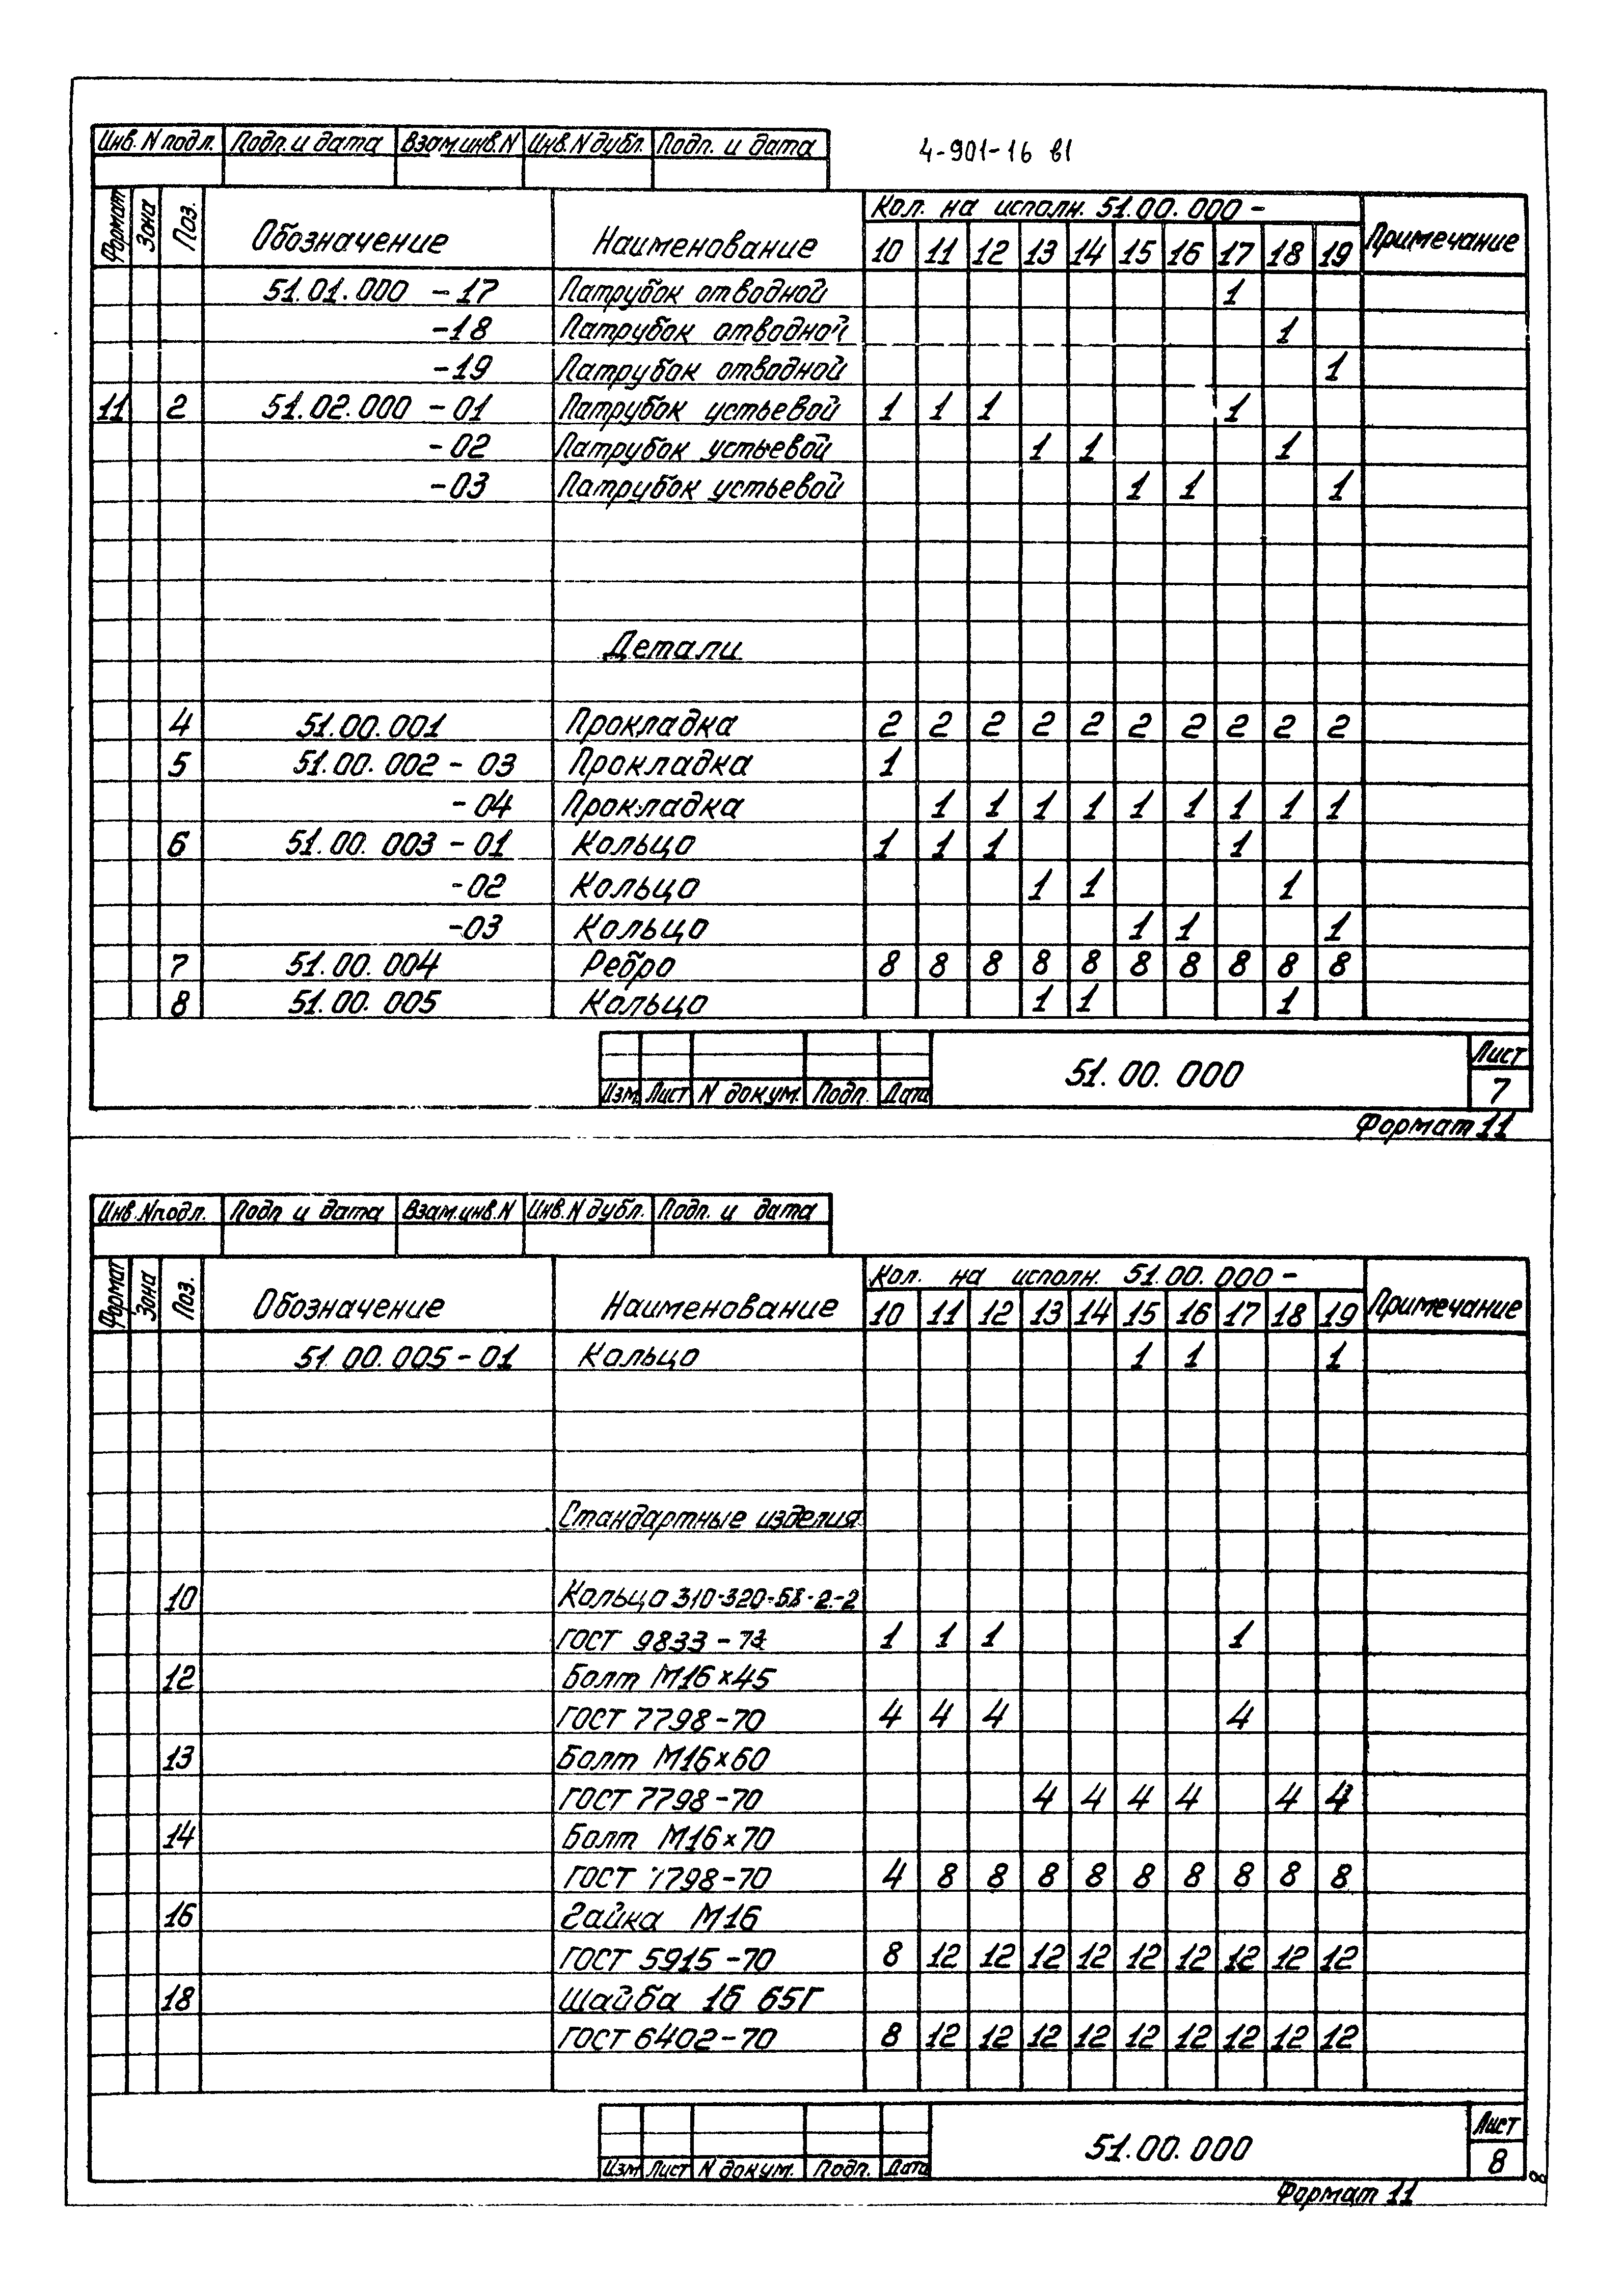 Инв. N подл. Подп. и дата Взам.инв.N Инв.N дубл. Подп. и дата 4-901-16 в1
Формат Зона Поз. Обозначение Наименование Кол. на исполн. 51.00.000 - Примечание
10 11 12 13 14 15 16 17 18 19
51.01.000 -17 Патрубок отводной 1
-18 Патрубок отводной 1
-19 Патрубок отводной 1
11 2 51.02.000 -01 Патрубок устьевой 1 1 1 1
-02 Патрубок устьевой 1 1 1
-03 Патрубок устьевой 1 1 1
Детали
4 51.00.001 Прокладка 2 2 2 2 2 2 2 2 2 2
5 51.00.002 - 03 Прокладка 1
- 04 Прокладка 1 1 1 1 1 1 1 1 1
6 51.00.003 - 01 Кольцо 1 1 1 1
-02 Кольцо 1 1 1
-03 Кольцо 1 1 1
7 51.00.004 Ребро 8 8 8 8 8 8 8 8 8 8
8 51.00.005 Кольцо 1 1 1
51.00.000 Лист
Изм Лист N докум. Подп. Дата 7
Формат 11
Инв.N подл. Подп и дата Взам.инв.N Инв.N дубл. Подп. и дата
Формат Зона Поз. Обозначение Наименование Кол. на исполн. 51.00.000 - Примечание
10 11 12 13 14 15 16 17 18 19
51.00.005-01 Кольцо 1 1 1
Стандартные изделия
10 Кольцо 310-320-58-2-2
ГОСТ 9833 - 73 1 1 1 1
12 Болт М16×45
ГОСТ 7798-70 4 4 4 4
13 Болт М16×60
ГОСТ 7798-70 4 4 4 4 4 4
14 Болт М16×70
ГОСТ 7798-70 4 8 8 8 8 8 8 8 8 8
16 Гайка М16
ГОСТ 5915-70 8 12 12 12 12 12 12 12 12 12
18 Шайба 16 65Г
ГОСТ 6402-70 8 12 12 12 12 12 12 12 12 12
51.00.000 Лист
Изм Лист N докум. Подп. Дата 8
8
Формат 11